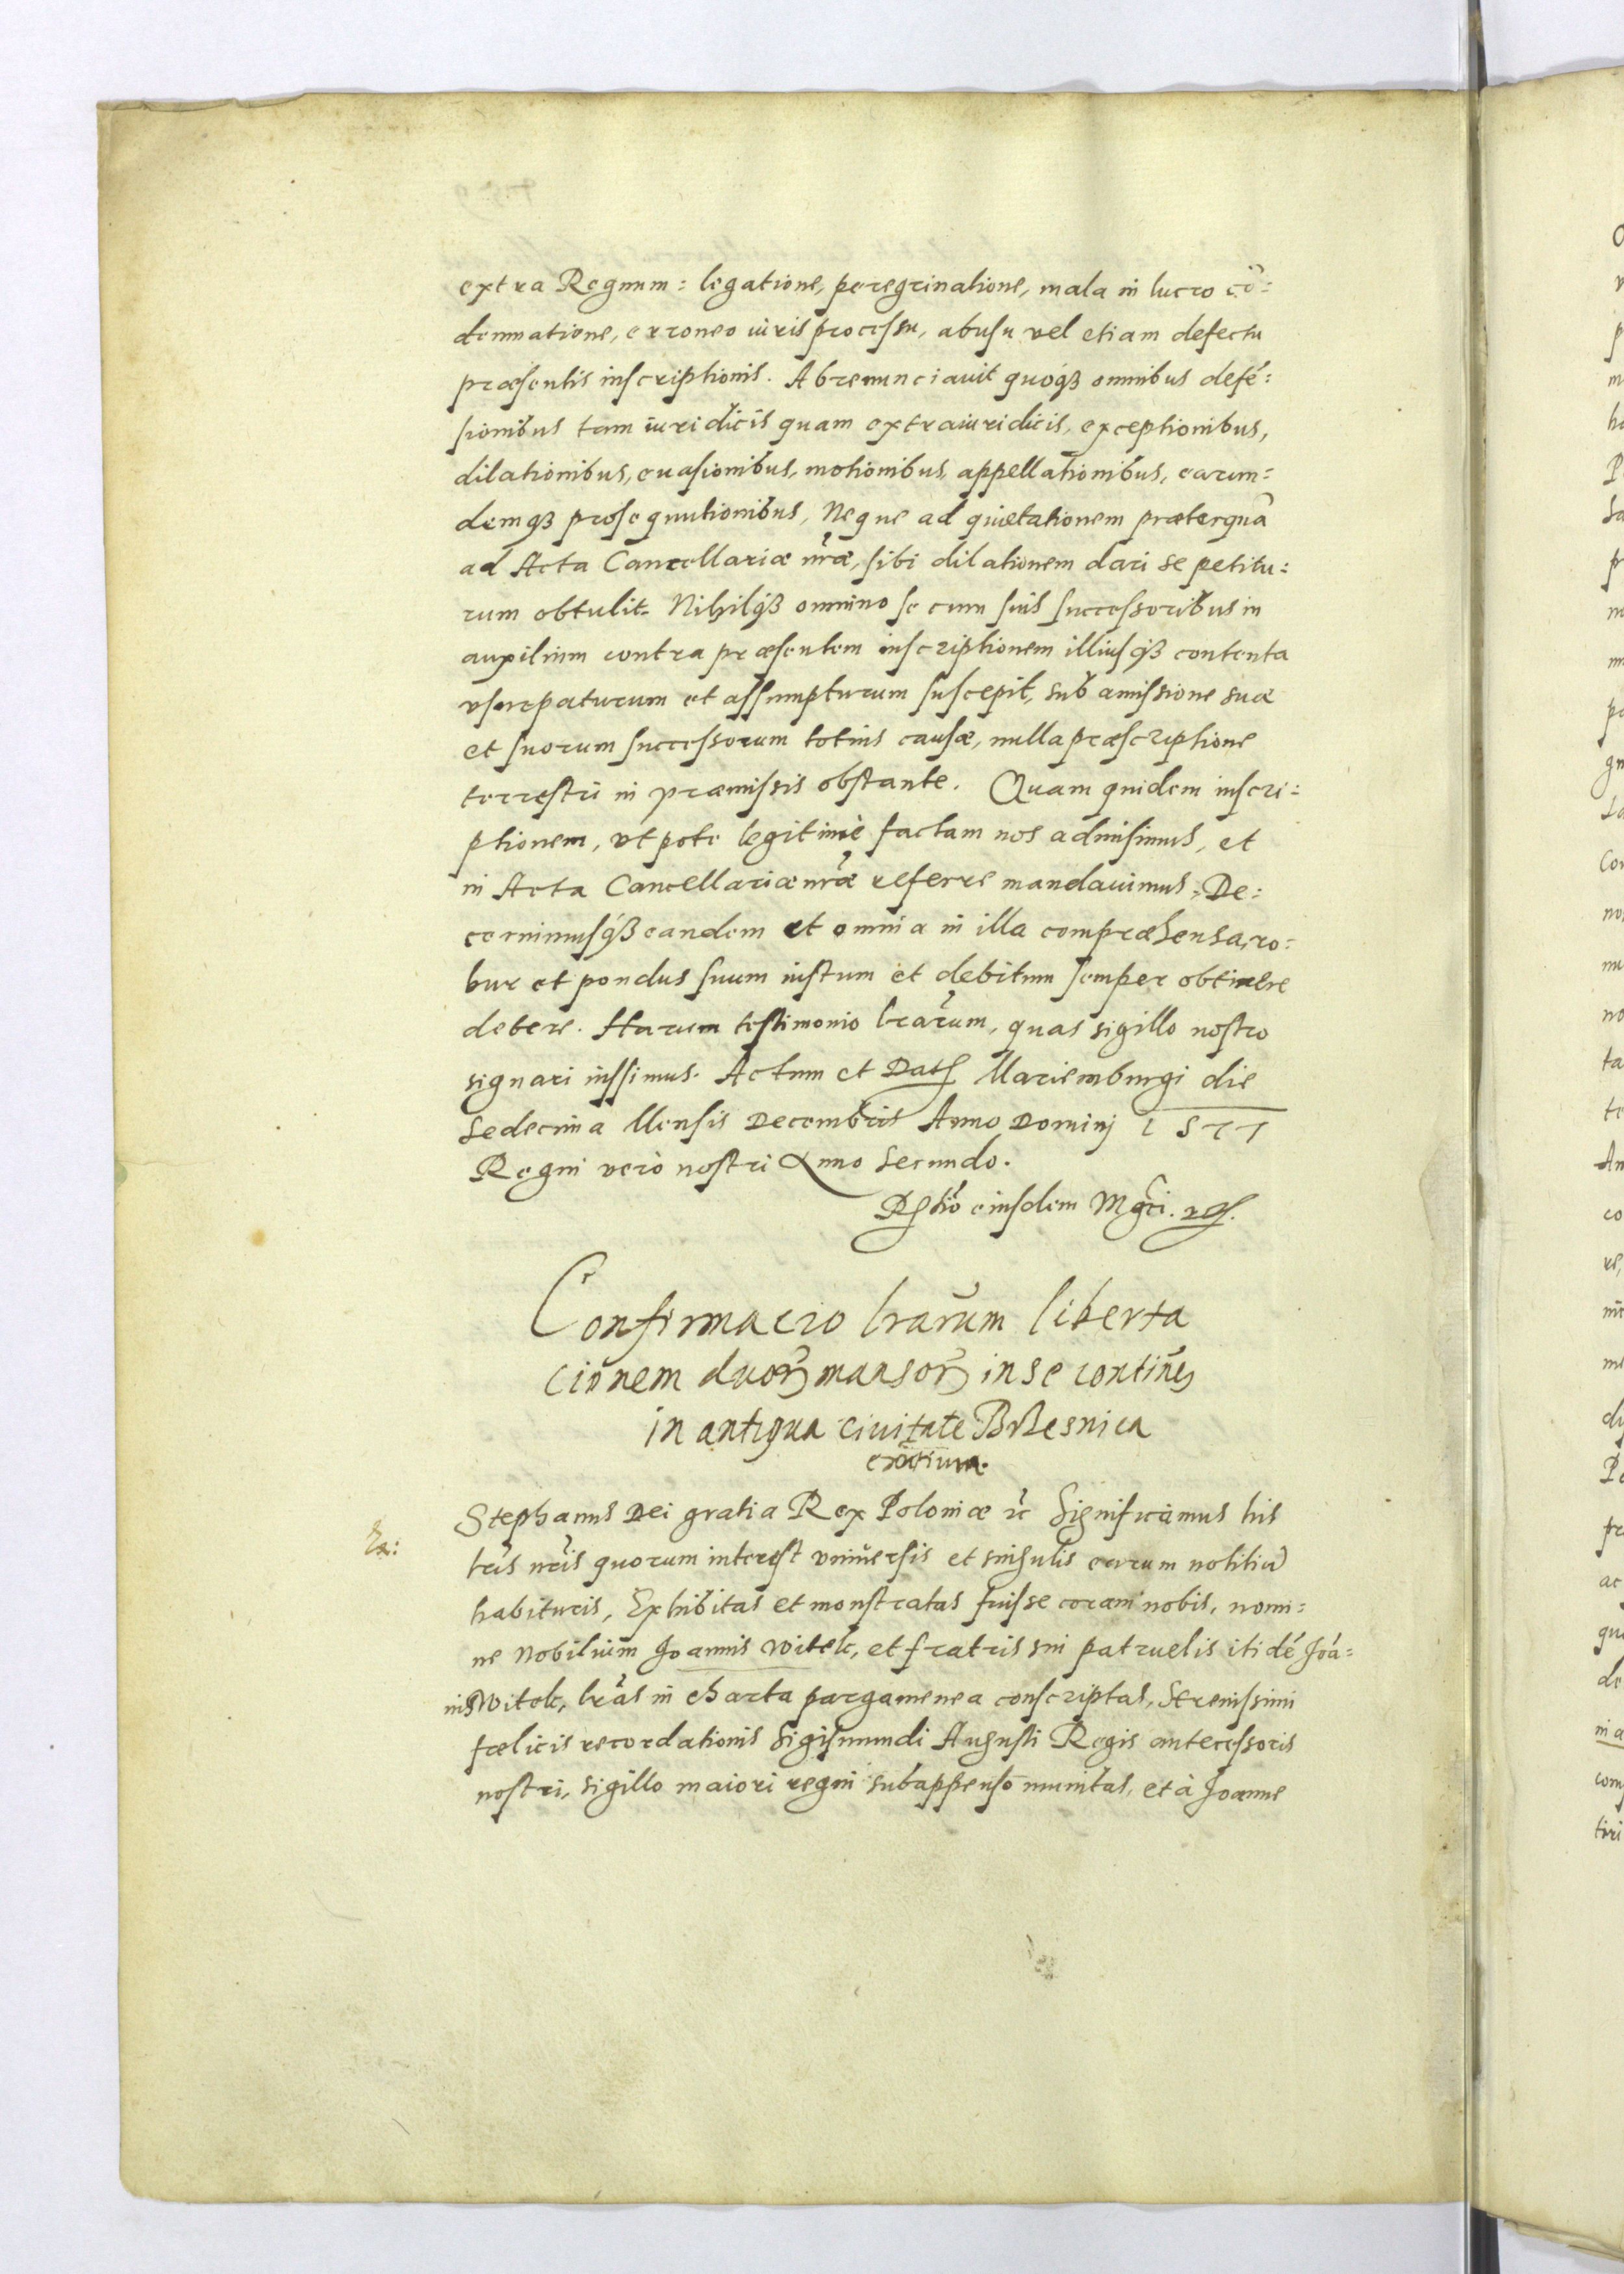 extra Regnum: legatione, peregrinatione, mala in lucro cō:
demnatione, erroneo iuris processu, abusu vel etiam defectu
præsentis inscriptionis. Abrenunciavit quoqȝ omnibus defē:
sionibus tam iuridicis quam extraiuridicis, exceptionibus,
dilationibus, euasionibus, motionibus, appellationibus, earum=
demqȝ prosequutionibus, Neque ad quietationem præterquā
ad Acta Cancellariæ nrae, sibi dilationem dari se petitu:
rum obtulit. Nihilqȝ omnino se cum suis successoribus in
auxilium contra præsentem inscriptionem illiusqȝ contenta
vsurpaturum et assumpturum suscepit, sub amissione suæ
et suorum successorum totius causæ, nulla præscriptione
terrestri in præmissis obstante. Quam quidem inscri:
ptionem, vt pote legitimè factam nos admisimus, et
in Acta Cancellariæ nrae referre mandauimus, De:
cernimusqȝ eandem et omnia in illa compræhensa, ro:
bur et pondus suum iustum et debitum semper obtinere
debere. Harum testimonio lrarum, quas sigillo nostro
signari iussimus. Actum et Dat Mariemburgi die
Sedecima Mensis Decembris Anno Dominj 1577
Regni verò nostri Anno Secundo.
Rltio eiusdem Mgci.
Confirmacio lrarum liberta
cionem duor mansor in se contines
in antiqua ciuitate Brzesnica
Stephanus Dei gratia Rex Poloniæ rc Significamus his
lris nris quorum interest vniuersis et singulis earum notitiā
habituris, Exhibitas et monstratas fuisse coram nobis, nomi:
ne Nobilium Joannis Witek, et fratris sui patruelis itidē Joā=
nis Witek, lras in charta pargamenea conscriptas, Serenissimi
fœlicis recordationis Sigismundi Augusti Regis antecessoris
nostri, sigillo maiori regni subappenso munitas, et à Joanne